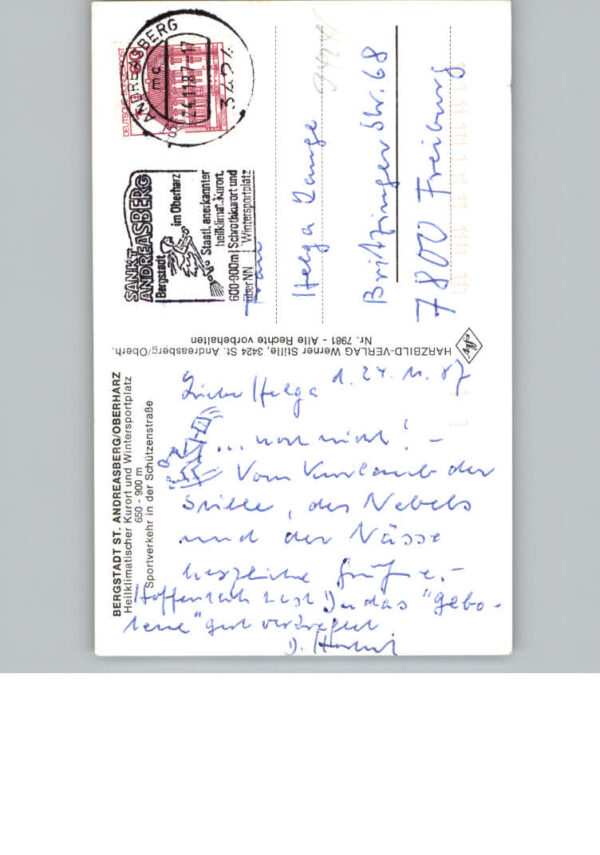 BERGSTADT ST. ANDREASBERG/OBERHARZ
Heilklimatischer Kurort und Wintersportplatz
650 - 900 m
Sportverkehr in der Schützenstraße
Liebe Helga 1. 24. 11. 87
... noch nicht! -
Vom Kurlaub der
Stille, des Nebels
und der Nässe
herzliche Grüße. -
Hoffentlich hast Du das "gebo-
tene" gut
D. 
HARZBILD-VERLAG Werner Stille, 3424 St. Andreasberg/Oberh.
Nr. 7981 - Alle Rechte vorbehalten
SANKT
ANDREASBERG
Bergstadt im Oberharz
Staatl. anerkannter
heilklimat. Kurort,
600-900m Schrothkurort und
über NN Wintersportplatz
ANDREASBERG
mc
24.11.87-17
3424
DEUTSCHE BUNDESPOST
Frau
Helga Lange
Britzinger Str. 68
7800 Freiburg